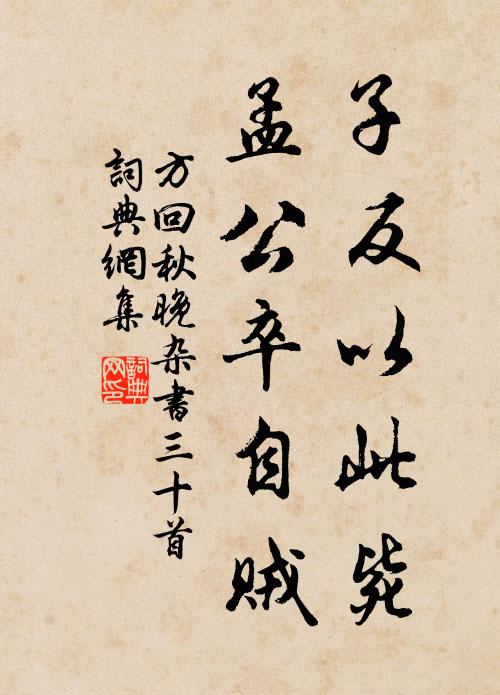 子反以此毙
孟公卒自贼
方回秋晚杂书三十首
詞典網集
詞典網印